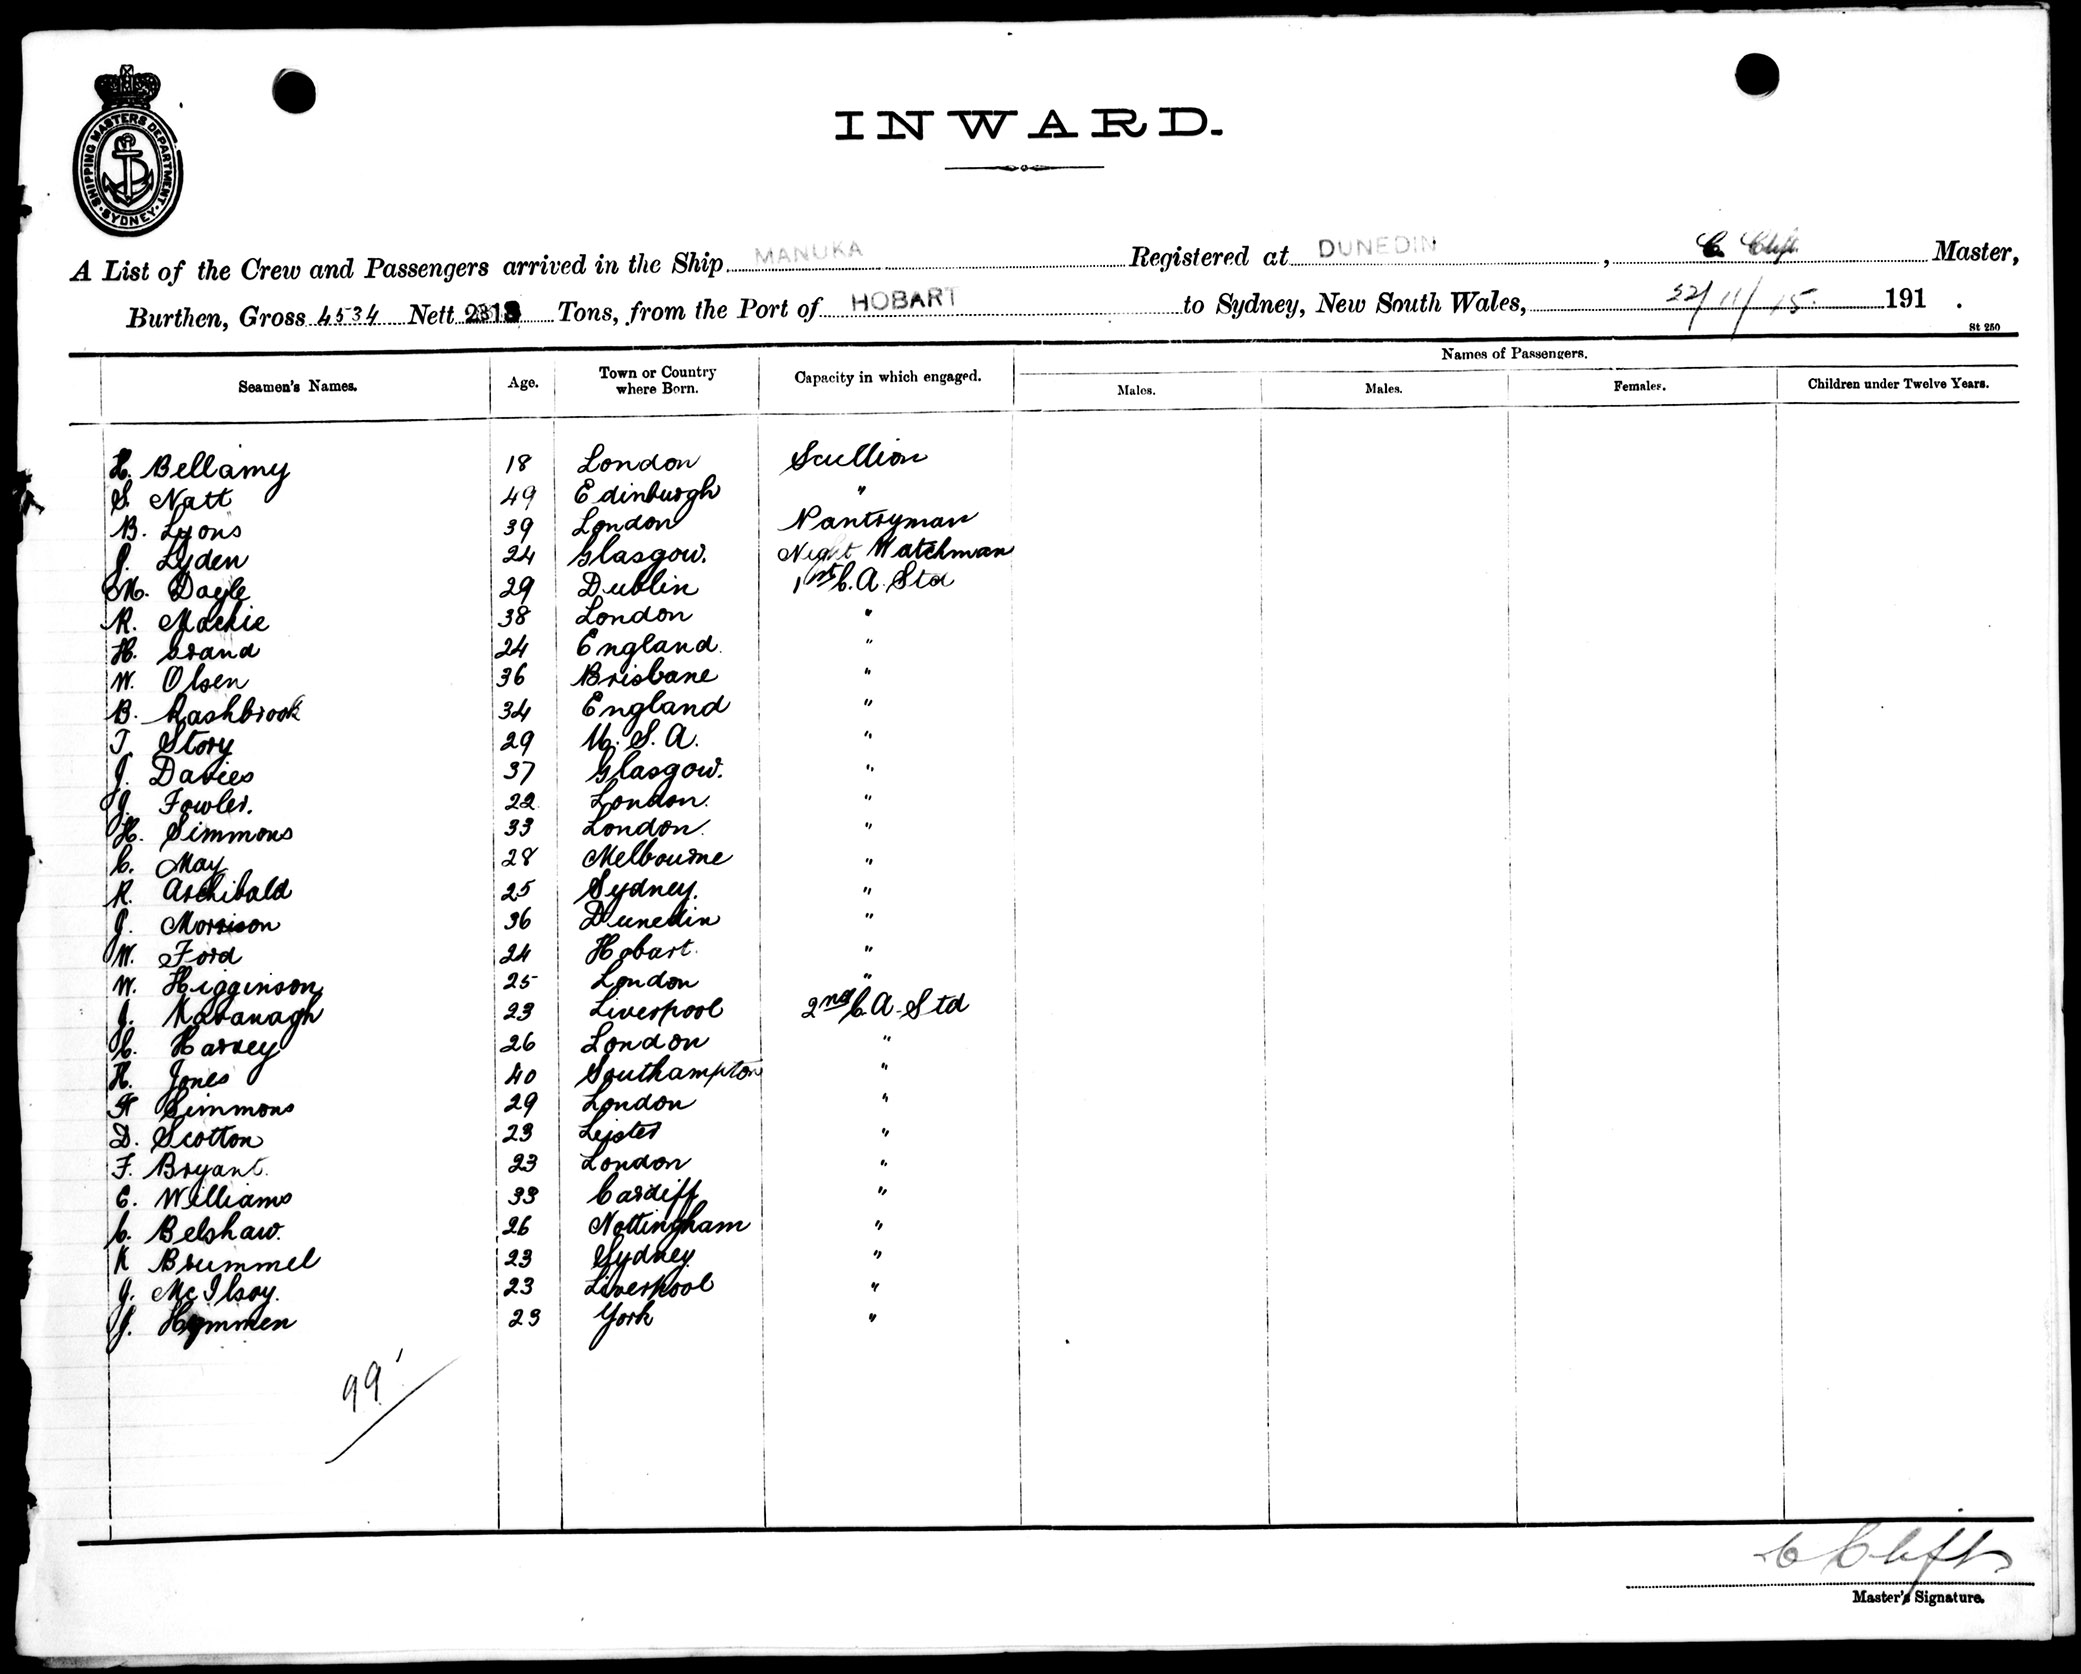 SHIPPING MASTERS DEPARTMENT. SYDNEY.
INWARD.
A List of the Crew and Passengers arrived in the Ship MANUKA Registered at DUNEDIN, C. Clift Master,
Burthen, Gross 4534 Nett Tons, from the Port of HOBART to Sydney, New South Wales, 22/11/15. 191 .
St 250
Names of Passengers.
Seamen's Names. Age. Town or Country where Born. Capacity in which engaged. Males. Males. Females. Children under Twelve Years.
H. Bellamy 18 London Scullion
S. Natt 49 Edinburgh "
B. Lyons 39 London Pantryman
J. Lyden 24 Glasgow. Night Watchman
M. Dayle 29 Dublin 1st C. A. Std
R. Mackie 38 London "
H. Brand 24 England "
W. Olsen 36 Brisbane "
B. Rashbrook 34 England "
T. Story 29 U. S. A. "
J. Davies 37 Glasgow. "
J. Fowler. 22 London. "
H. Simmons 33 London. "
C. May 28 Melbourne "
R. Archibald 25 Sydney. "
J. Morrison 36 Dunedin "
W. Ford 24 Hobart "
W. Higginson 25 London "
J. Kavanagh 23 Liverpool 2nd C. A. Std
C. Harvey 26 London "
H. Jones 40 Southampton "
Simmons 29 London "
D. Scotton 23 Leister "
F. Bryant. 23 London "
E. Williams 33 Cardiff "
C. Belshaw. 26 Nottingham "
K Brummel 23 Sydney "
J. McIlroy. 23 Liverpool "
J. Hymmen 23 York "
99
C Clift
Master's Signature.